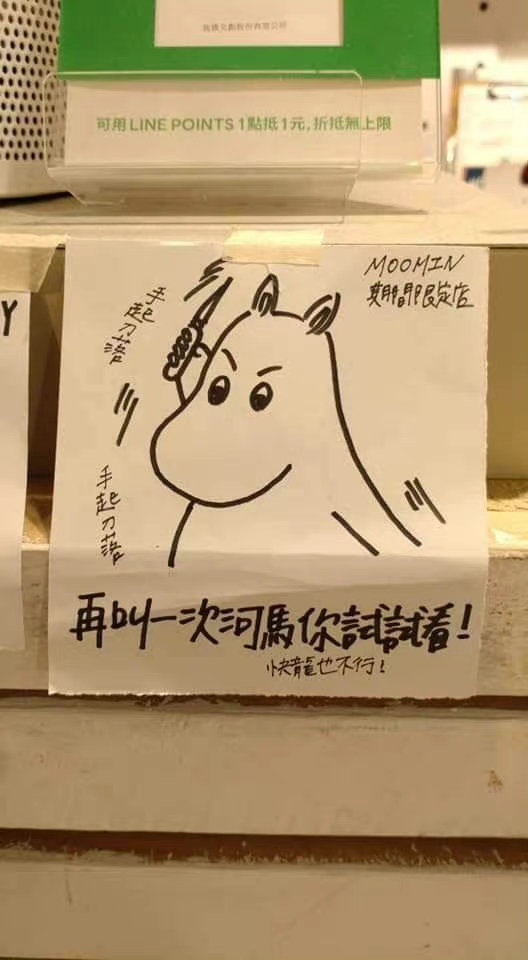 可用LINE POINTS 1點抵1元,折抵無上限
MOOMIN
期間限定店
手起刀落
手起刀落
再叫一次河馬你試試看!
快龍也不行!
Y